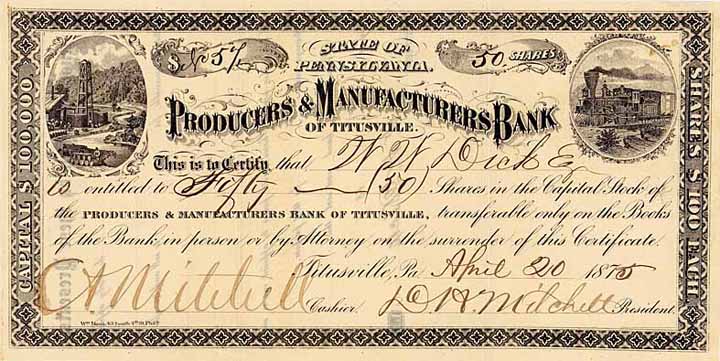 No 57
STATE OF PENNSYLVANIA.
50 SHARES
PRODUCERS & MANUFACTURERS BANK
OF TITUSVILLE.
This is to Certify that W W Dick
is entitled to Fifty (50) Shares in the Capital Stock of
the PRODUCERS & MANUFACTURERS BANK OF TITUSVILLE, transferable only on the Books
of the Bank in person or by Attorney on the surrender of this Certificate.
Titusville, Pa. April 20 1875
Cashier. President.
Mitchell D H Mitchell
CAPITAL $100,000.
SHARES $100 EACH.